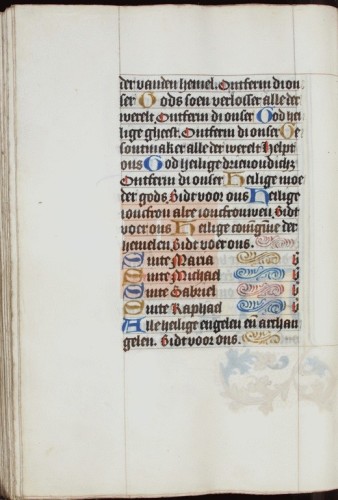 der vanden hemel. Ontferm di on
ser God soen verlosser alle der
werelt. Ontferm di onser God hei
lige gheest. Ontferm di onser Ge
sontmaker alle der werelt Helpt
ons God heilige drievoudich
Ontferm di onser Heilige moe
der gods. Bidt voor ons Heilige
ioncfrou alre ioncfrouwen. Bidt
voer ons Heilige coningine der
hemelen. Bidt voer ons.
Sinte Maria b
Sinte Michael b
Sinte Gabriel b
Sinte Raphael b
Alle heilige engelen en archan
gelen. Bidt voor ons.